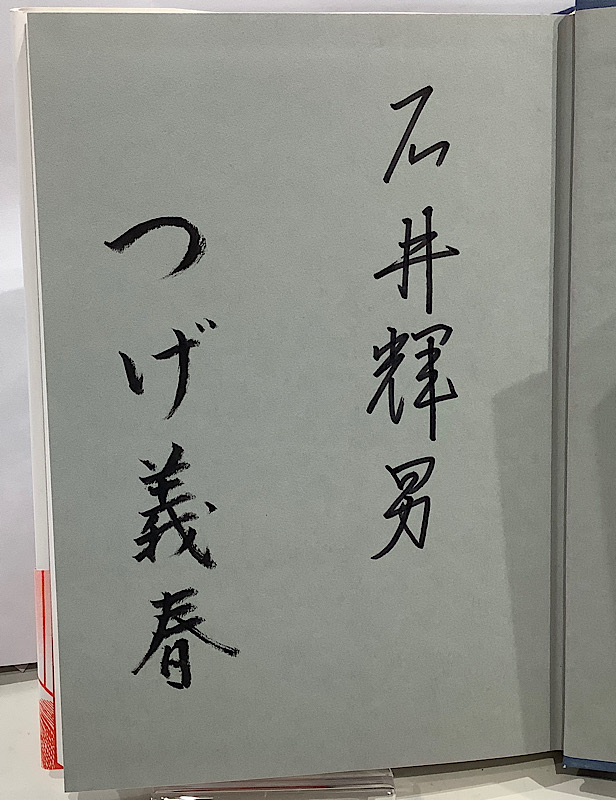 石井輝男
つげ義春